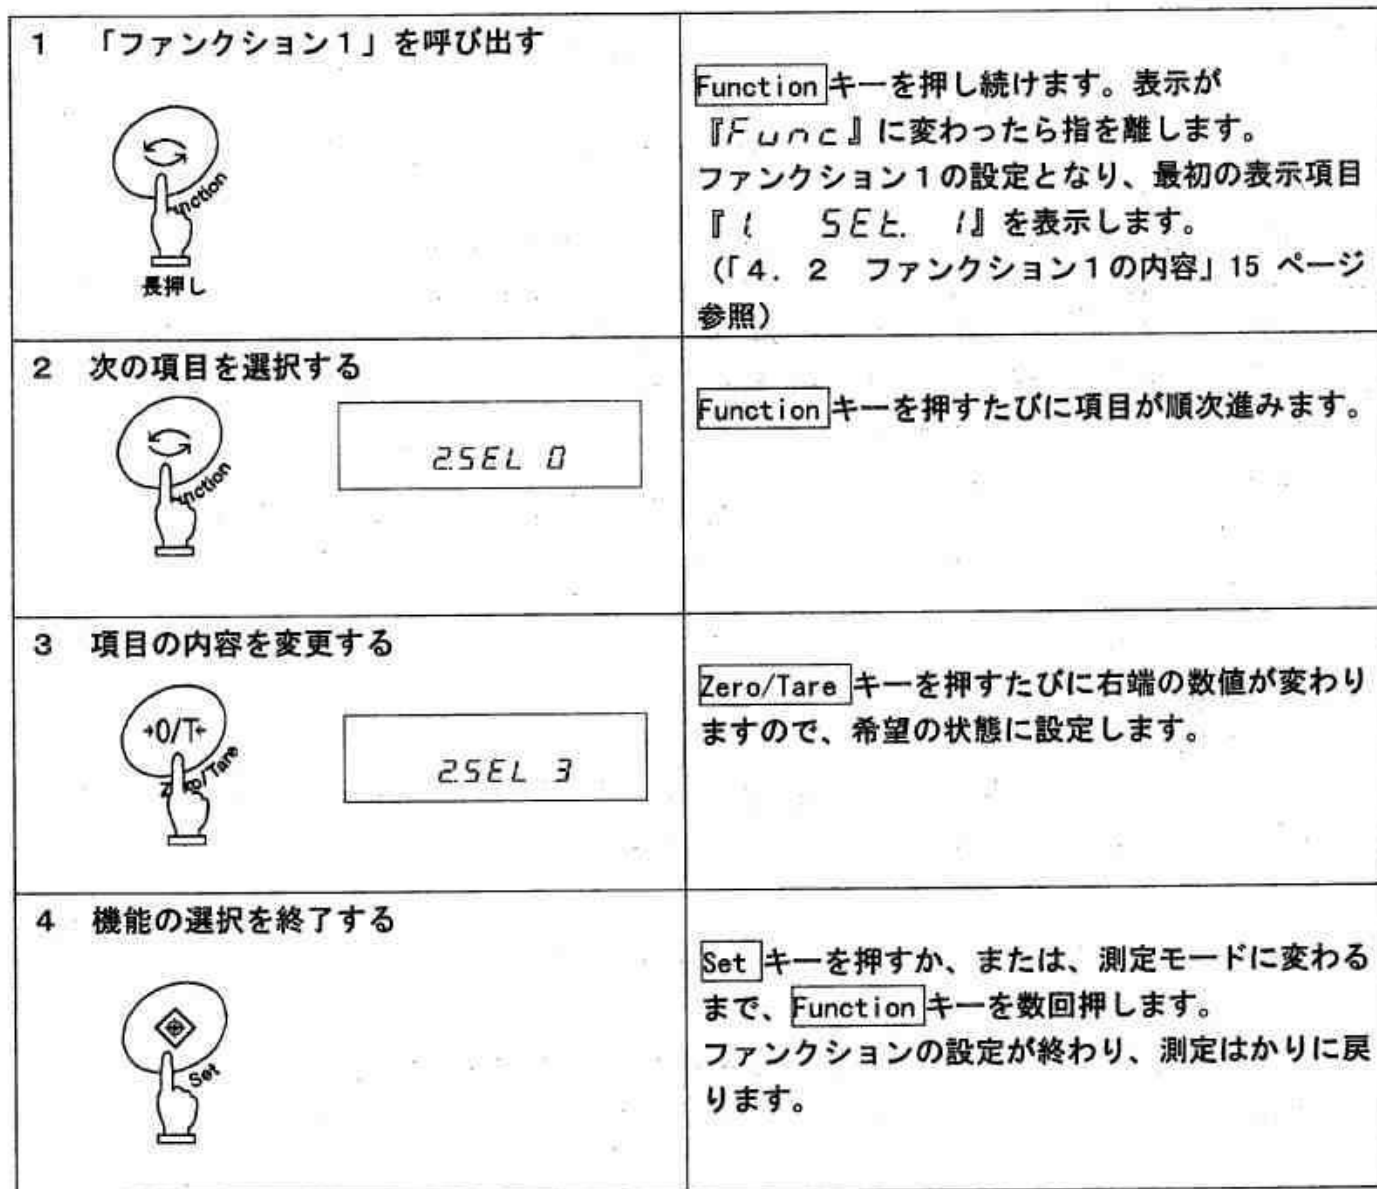 1 「ファンクション1」を呼び出す
unction
長押し
Functionキーを押し続けます。表示が
『Func』に変わったら指を離します。
ファンクション1の設定となり、最初の表示項目
『1 SEt. 1』を表示します。
(「4.2 ファンクション1の内容」15 ページ
参照)
2 次の項目を選択する
unction
2.SEL 0
Functionキーを押すたびに項目が順次進みます。
3 項目の内容を変更する
→0/T←
Zero/Tare
2.SEL 3
Zero/Tareキーを押すたびに右端の数値が変わり
ますので、希望の状態に設定します。
4 機能の選択を終了する
Set
Setキーを押すか、または、測定モードに変わる
まで、Functionキーを数回押します。
ファンクションの設定が終わり、測定はかりに戻
ります。